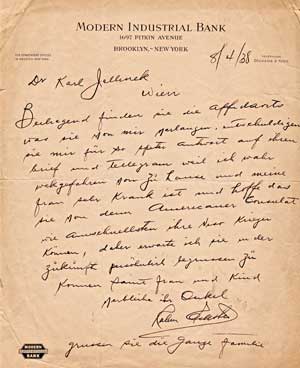 MODERN INDUSTRIAL BANK
1697 PITKIN AVENUE
BROOKLYN, - NEW YORK
8/4/38
Dr Karl Jellinek
Wien
Beiliegend finden sie die Affidavits
was sie von mir verlangen, entschuldigen
sie mir für so späte Antwort auf ihren
brief und Tellegram weil ich wahr
wekgefahren von zu Hause und meine
frau sehr Krank ist und hoffe das
sie von dem Americaner Consulat
am schnellsten ihre Kriegen
Können, daher erwarte ich sie in der
zukunft persönlich begrussen zu
Konnen samt frau und Kind
ihr Onkel
grussen sie die ganze familie
MODERN
INDUSTRIAL
BANK